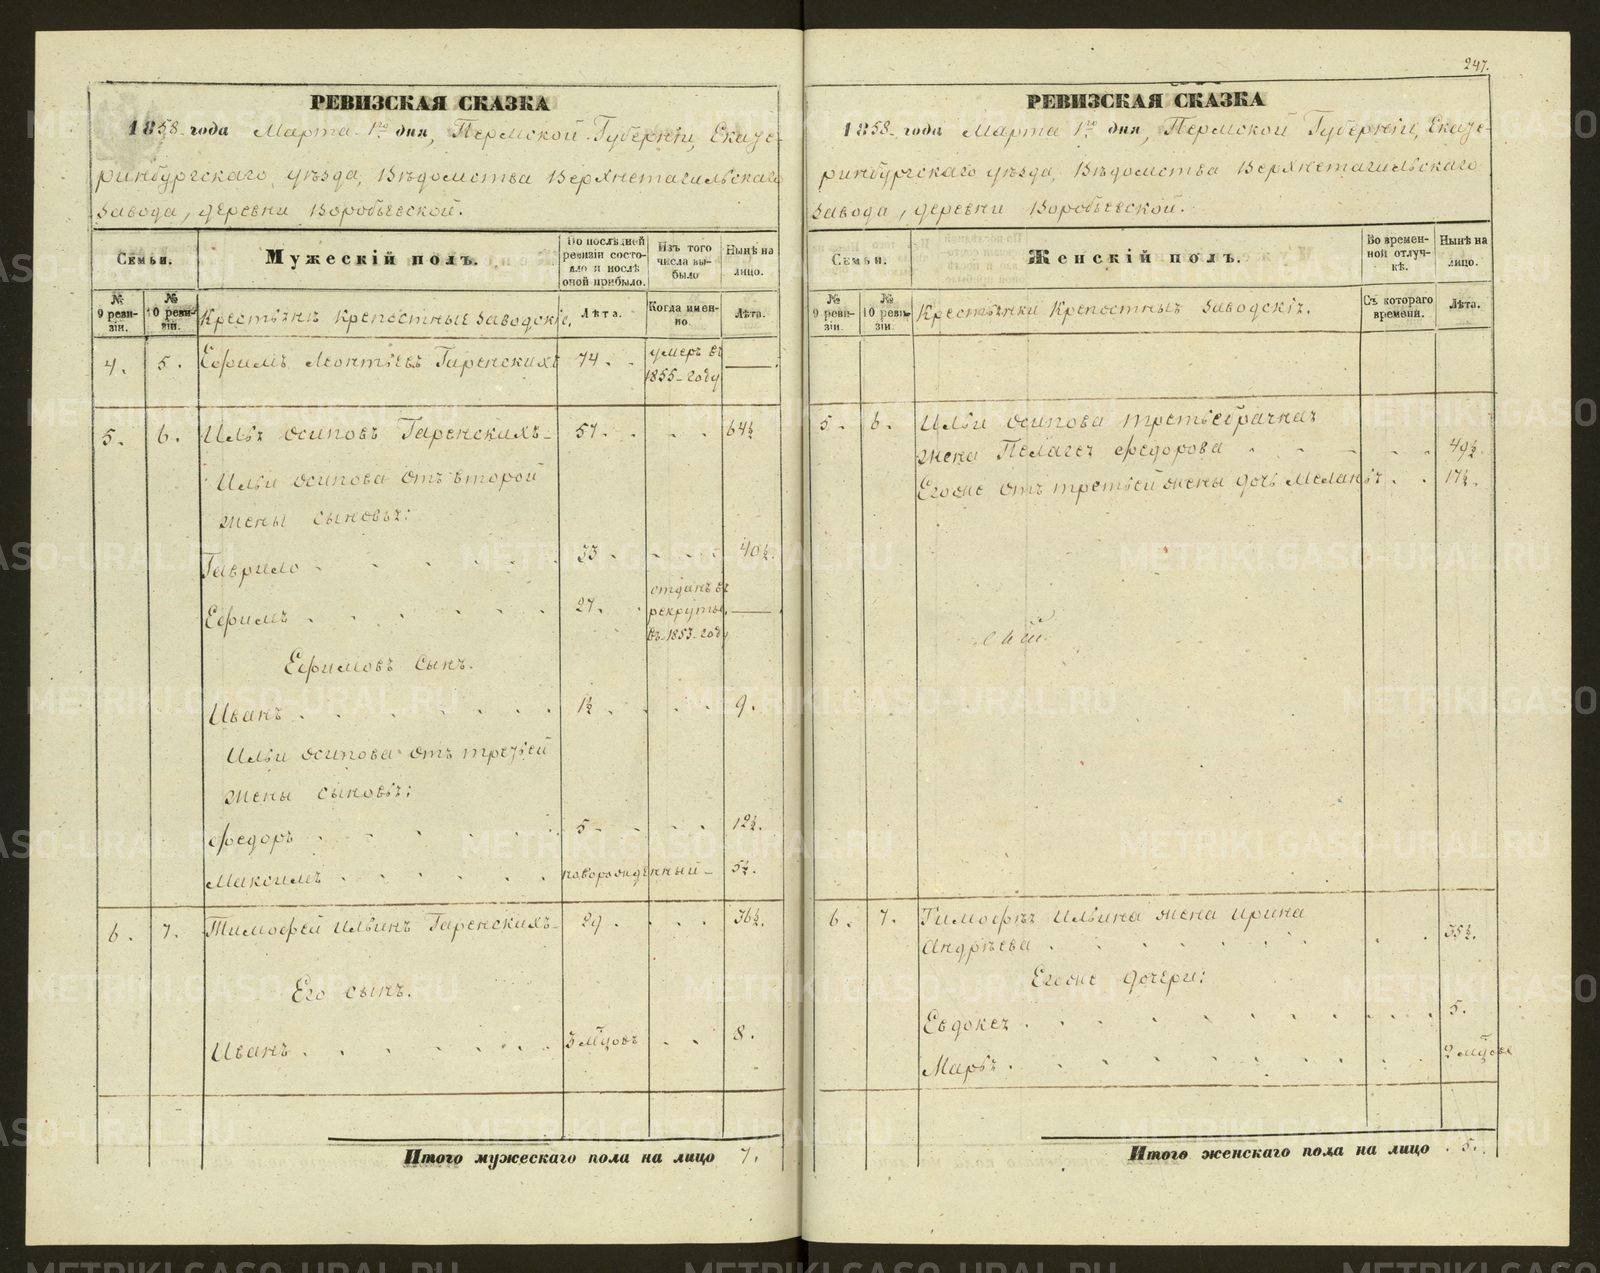 247.
РЕВИЗСКАЯ СКАЗКА
1858 года Марта 1го дня, Пермской Губерніи, Екате-
ринбургскаго уѣзда, Вѣдомства Верхнетагильскаго
Завода, деревни Воробьевской.
Семьи.
Мужескій полъ.
По послѣдней ревизіи состояло и послѣ оной прибыло.
Изъ того числа вы-было
Нынѣ на лицо.
№ 9 реви-зіи.
№ 10 реви-зіи.
Крестьяне крепостные Заводскіе,
Лѣта.
Когда имен-но
Лѣта.
4. 5. Ефимъ Леонтьевъ Гаренскихъ 74. умеръ въ 1855 году —
5. 6. Илья Осиповъ Гаренскихъ 57. 64½
Ильи Осипова отъ второй
жены сыновья:
Гаврило 33 40½.
Ефимъ 27. отданъ въ рекруты въ 1853 году —
Ефимовъ сынъ.
Иванъ 1½ 9.
Ильи Осипова отъ третьей
жены сыновья:
Федоръ 5 12½.
Максимъ новорожденный 5½.
6. 7. Тимофей Ильинъ Гаренскихъ 29 36½.
Его сынъ.
Иванъ 3 мцовъ 8.
Итого мужескаго пола на лицо 7.
РЕВИЗСКАЯ СКАЗКА
1858 года Марта 1го дня, Пермской Губерніи, Екате-
ринбургскаго уѣзда, Вѣдомства Верхнетагильскаго
Завода, деревни Воробьевской.
Семьи.
Женскій полъ.
Во времен-ной отлуч-кѣ.
Нынѣ на лицо.
№ 9 реви-зіи.
№ 10 реви-зіи.
Крестьянки Крепостныя Заводскія.
Съ котораго времени.
Лѣта.
5. 6. Ильи Осипова третьебрачная
жена Пелагея Федорова 49½.
Егоже отъ третьей жены дочь Меланья 17½.
6. 7. Тимофѣя Ильина жена Ирина
Андрѣева 35½.
Егоже дочери:
Евдокея 5.
Марья 2 мцовъ
Итого женскаго пола на лицо 5.
METRIKI.GASO-URAL.RU